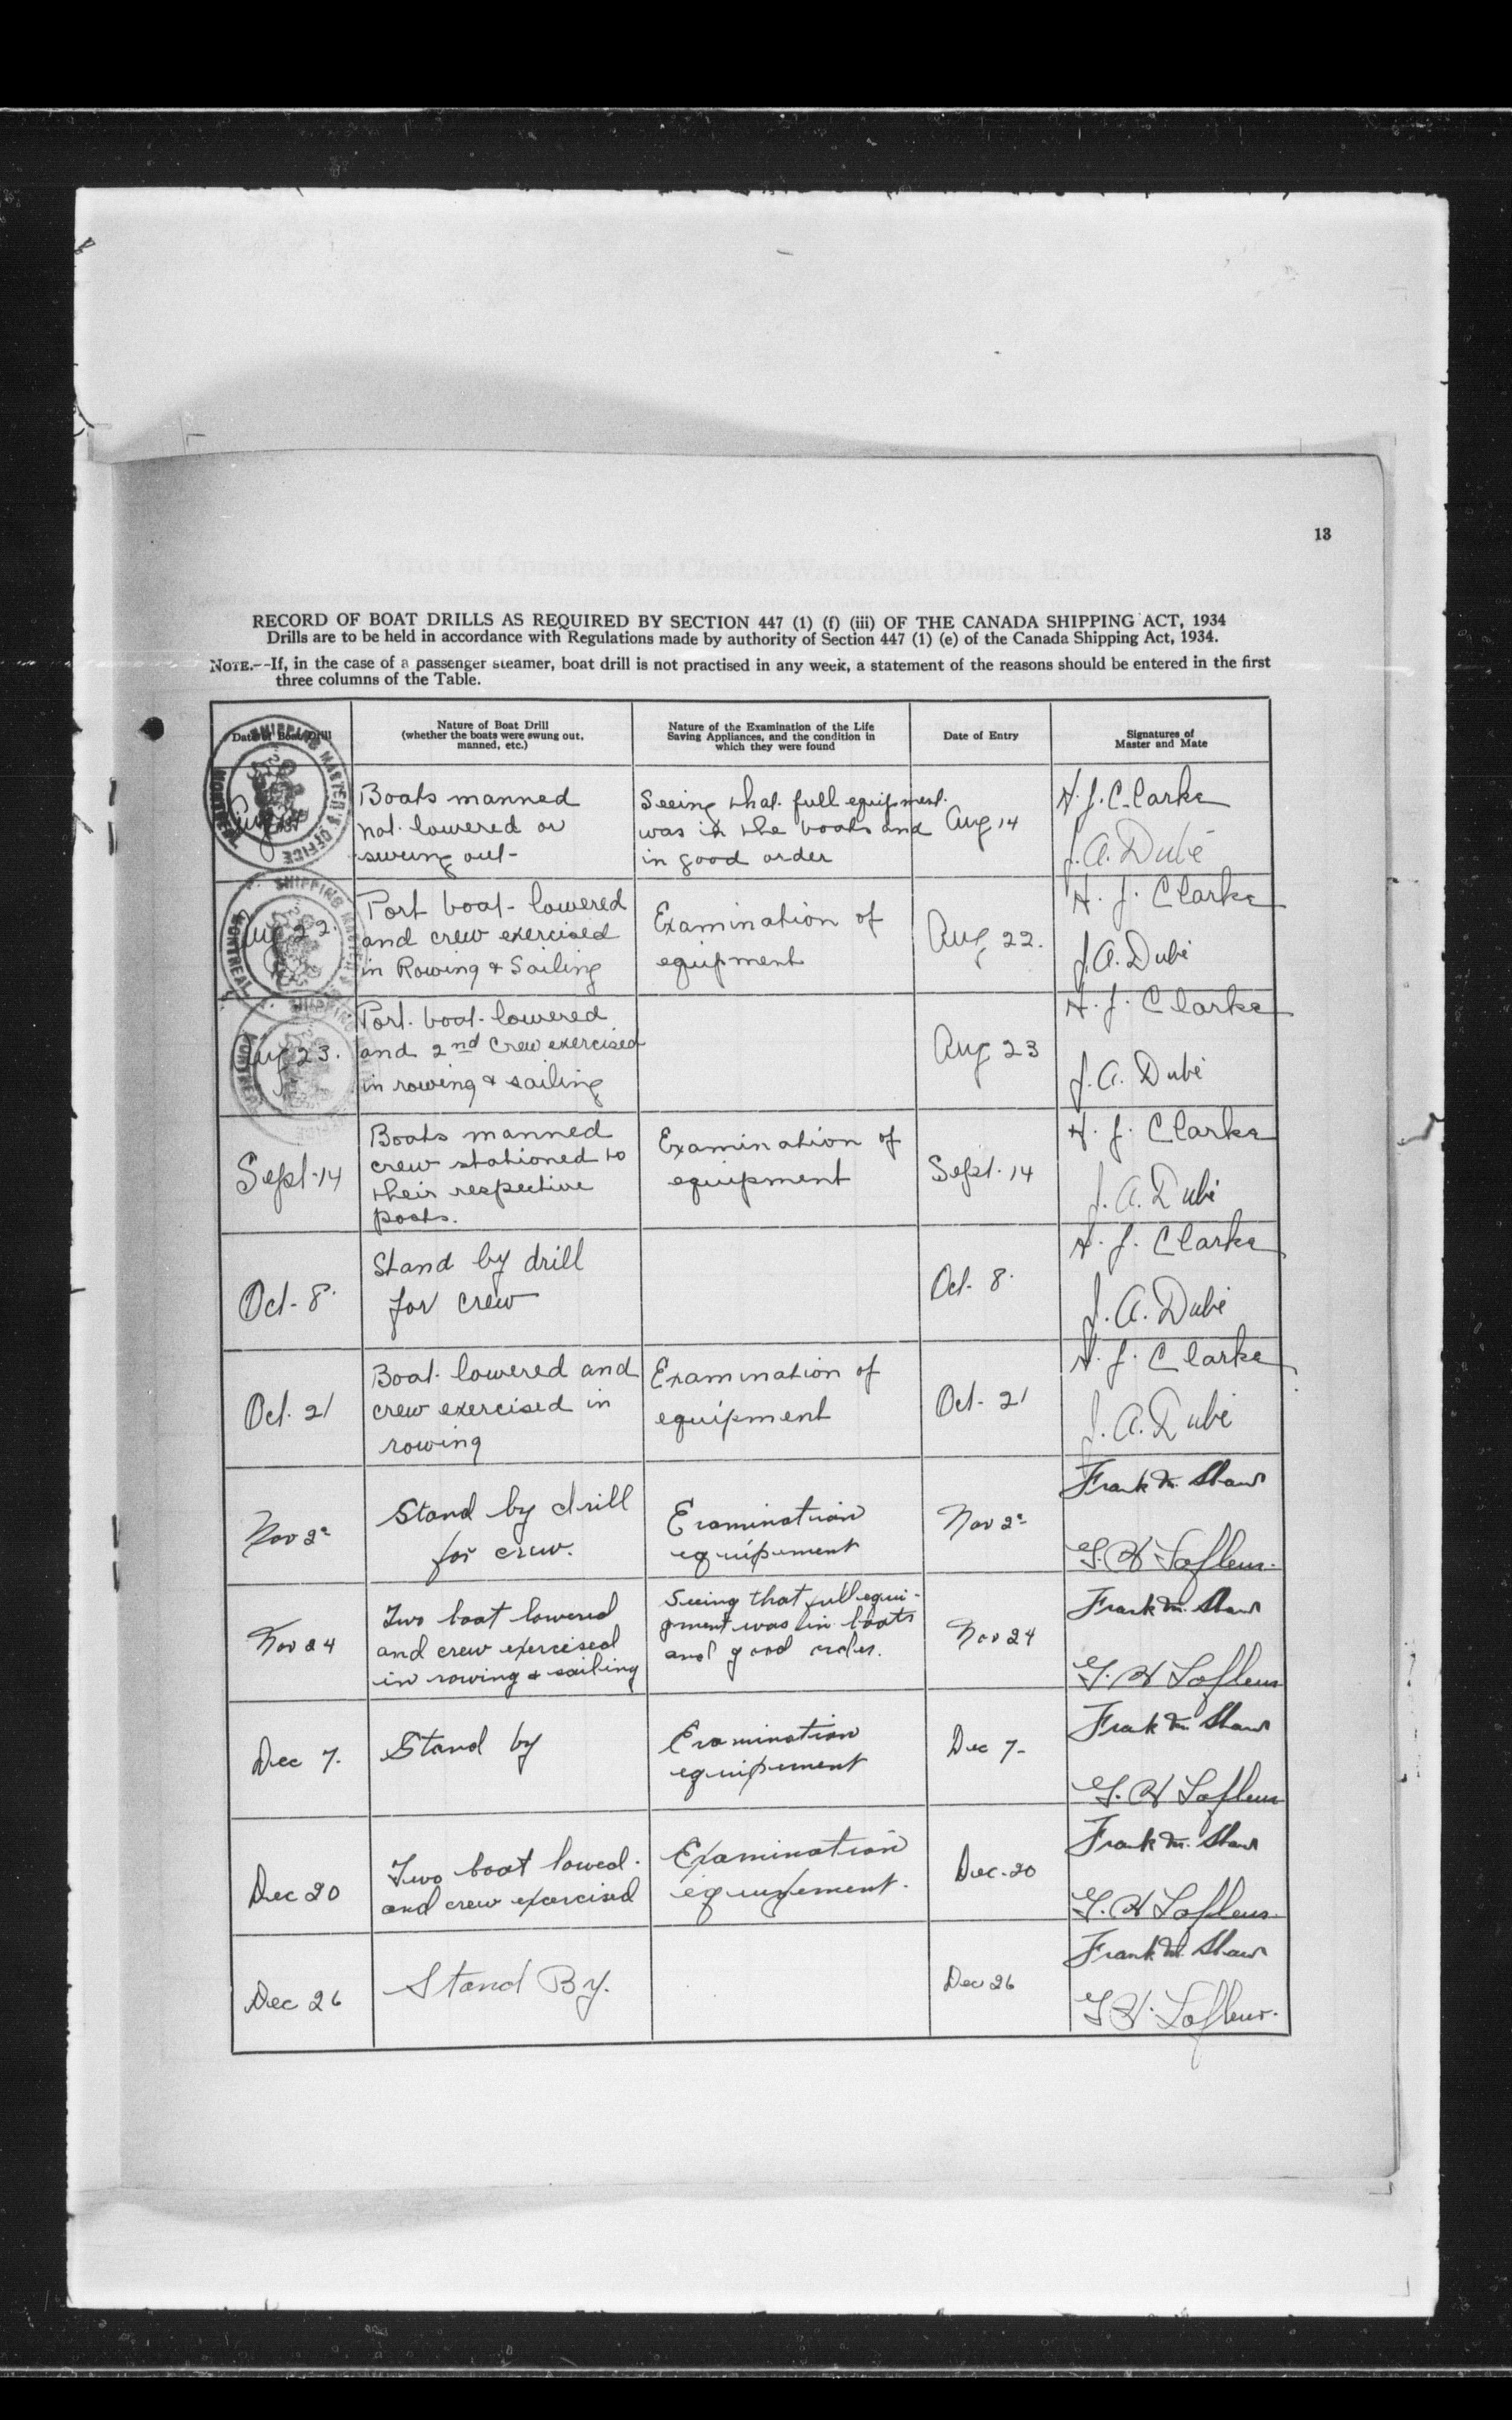 13
RECORD OF BOAT DRILLS AS REQUIRED BY SECTION 447 (1) (f) (iii) OF THE CANADA SHIPPING ACT, 1934
Drills are to be held in accordance with Regulations made by authority of Section 447 (1) (e) of the Canada Shipping Act, 1934.
NOTE.--If, in the case of a passenger steamer, boat drill is not practised in any week, a statement of the reasons should be entered in the first
three columns of the Table.
Date of Boat Drill
Nature of Boat Drill
(whether the boats were swung out,
manned, etc.)
Nature of the Examination of the Life
Saving Appliances, and the condition in
which they were found
Date of Entry
Signatures of
Master and Mate
SHIPPING MASTER'S OFFICE
MONTREAL
Boats manned
not lowered or
swung out
Seeing that full equipment
was in the boats and
in good order
Aug 14
H. J. Clarke
J. A. Dubé
SHIPPING MASTER'S
MONTREAL
Aug 22.
Port boat lowered
and crew exercised
in Rowing & Sailing
Examination of
equipment
Aug 22.
H. J. Clarke
J. A. Dubé
Aug 23.
Port boat lowered
and 2nd Crew exercised
in rowing & sailing
Aug 23
H. J. Clarke
J. A. Dubé
Sept. 14
Boats manned
crew stationed to
their respective
posts.
Examination of
equipment
Sept. 14
H. J. Clarke
J. A. Dubé
Oct. 8.
Stand by drill
for crew
Oct. 8.
H. J. Clarke
J. A. Dubé
Oct. 21
Boat lowered and
crew exercised in
rowing
Examination of
equipment
Oct. 21
H. J. Clarke
J. A. Dubé
Nov 2
Stand by drill
for crew.
Examination
equipement
Nov 2
Frank M. Shaw
G. H Lafleur.
Nov 24
Two boat lowered
and crew exercised
in rowing & sailing
Seeing that full equi-
pment was in boats
and good order.
Nov 24
Frank M. Shaw
G. H Lafleur
Dec 7.
Stand by
Examination
equipement
Dec 7-
Frank M. Shaw
G. H Lafleur
Dec 20
Two boat lowed.
and crew exercised
Examination
equipement.
Dec. 20
Frank M. Shaw
G. H Lafleur.
Dec 26
Stand By.
Dec 26
Frank M. Shaw
G H. Lafleur.